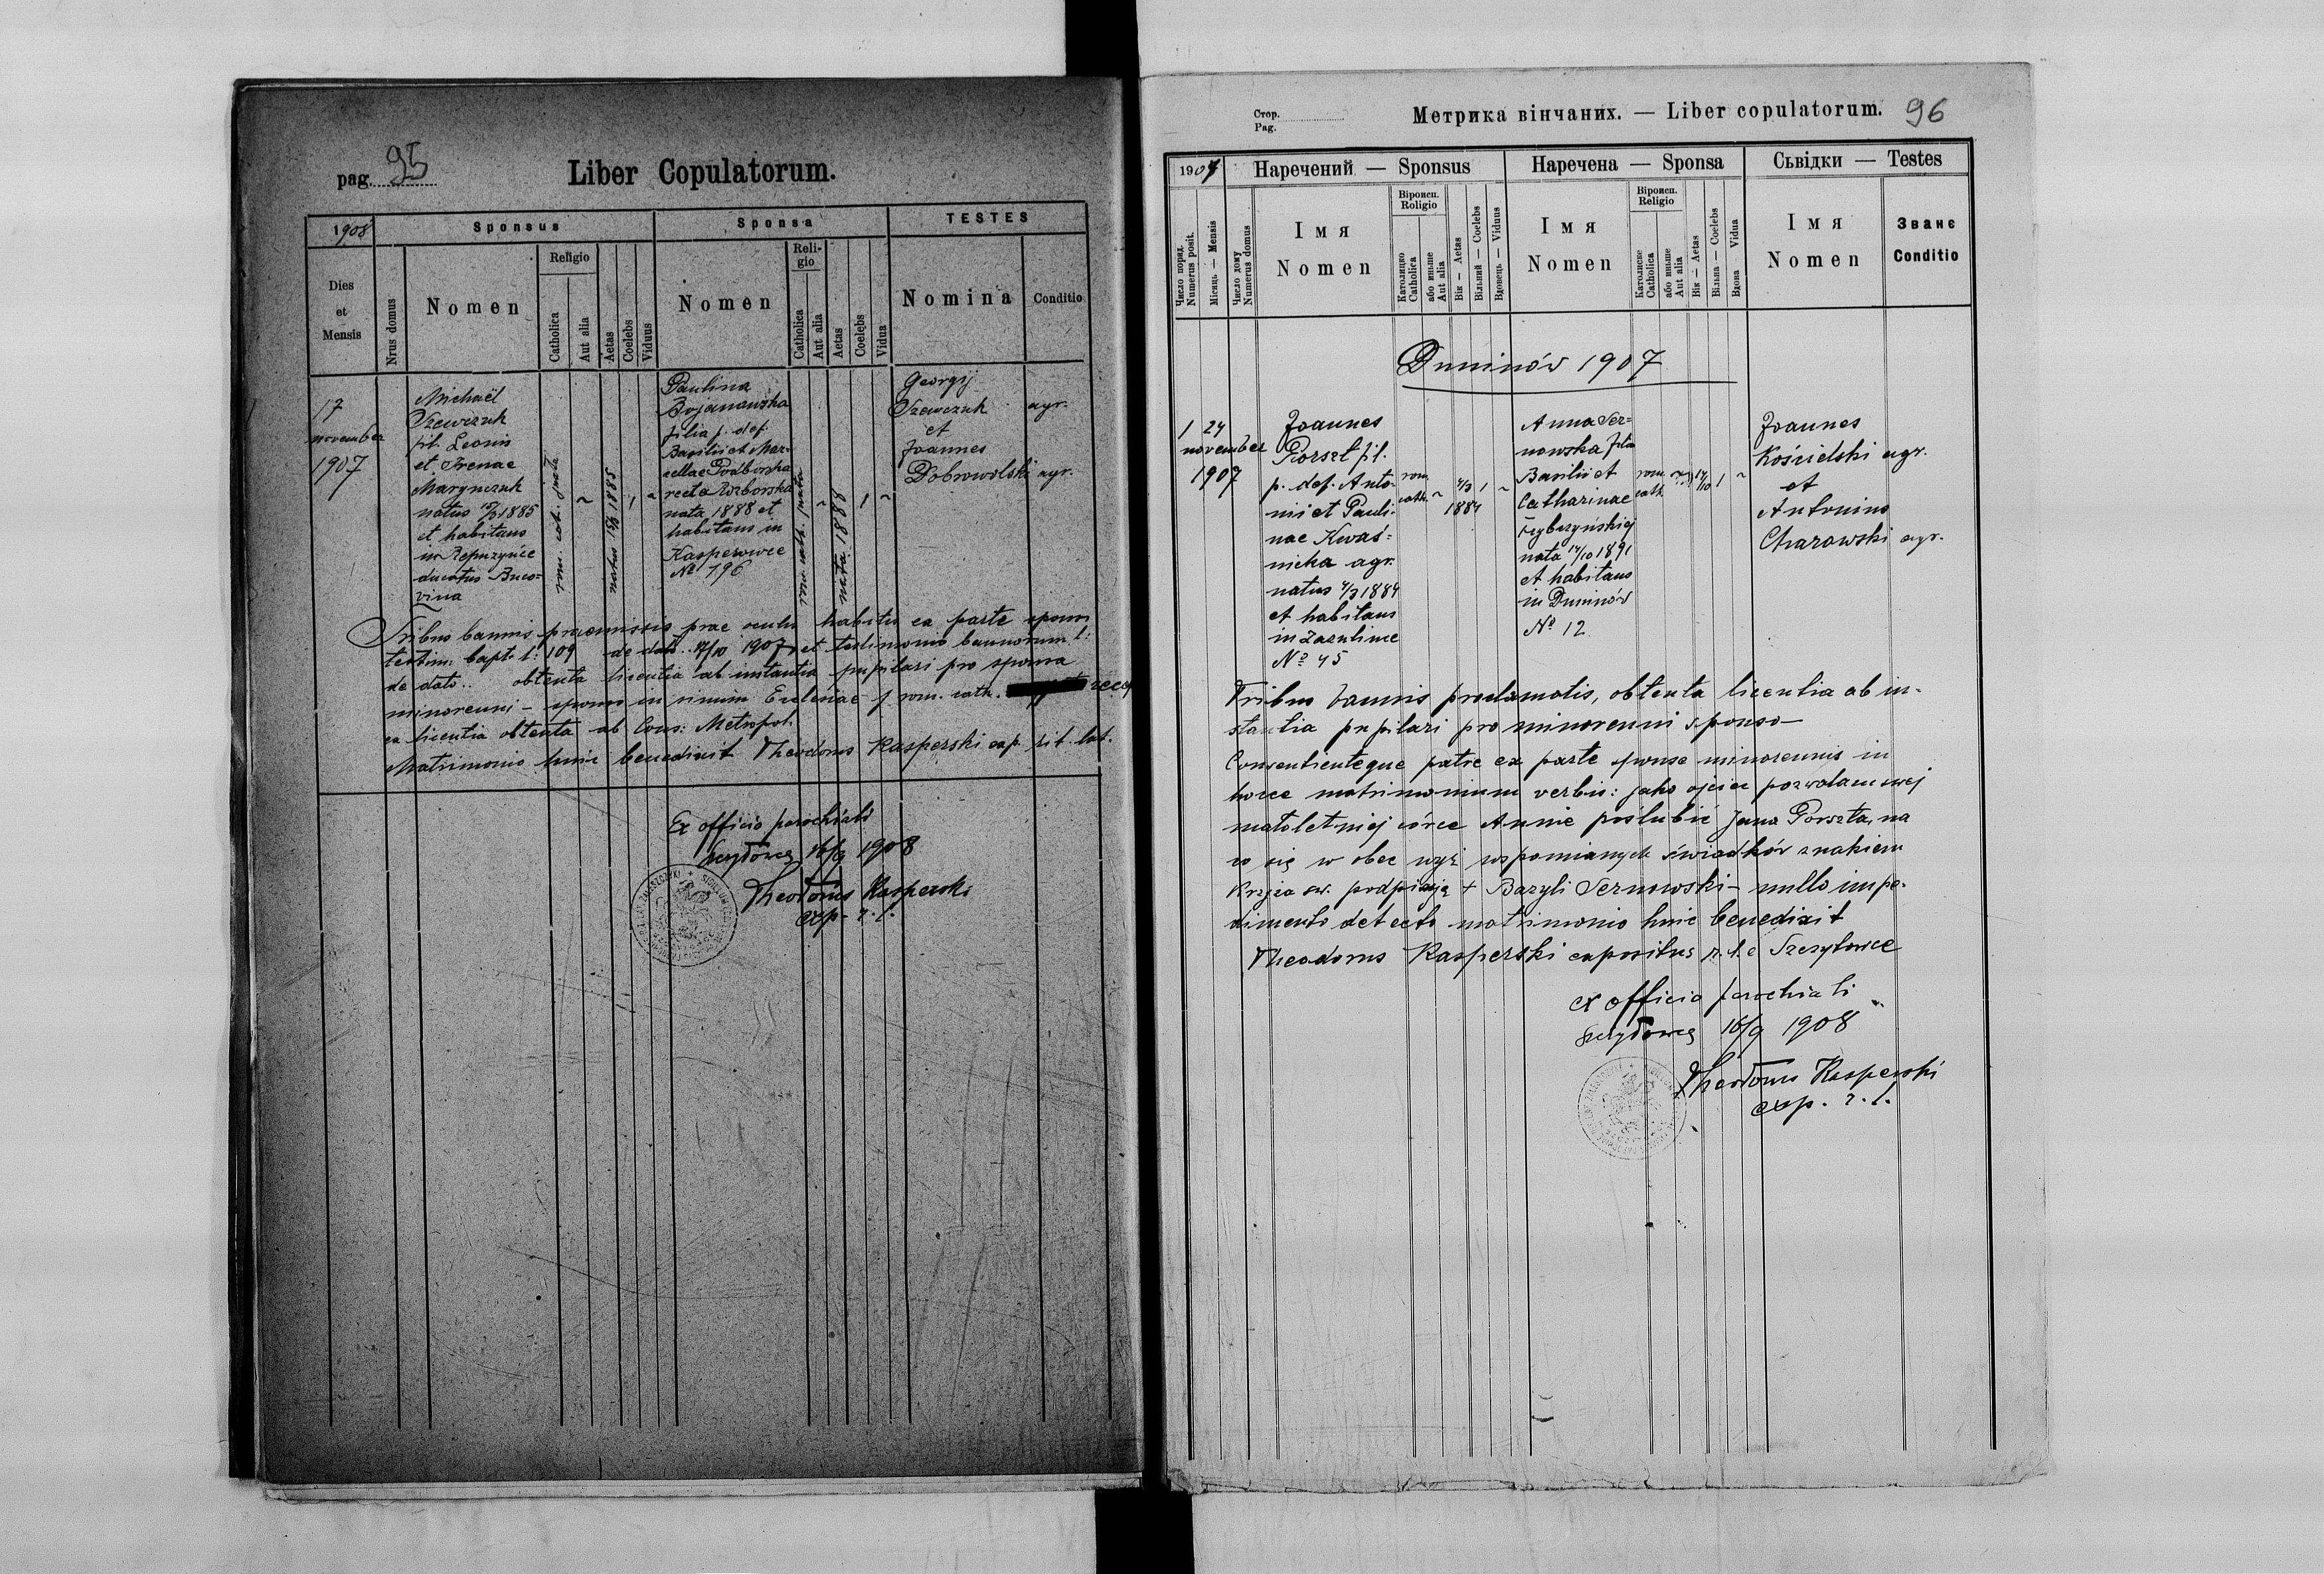 pag. 95
Liber Copulatorum.
1908
Sponsus
Sponsa
TESTES
Dies
et
Mensis
Nrus domus
Nomen
Religio
Catholica
Aut alia
Aetas
Coelebs
Viduus
Nomen
Reli-
gio
Catholica
Aut alia
Aetas
Coelebs
Vidua
Nomina
Conditio
17
november
1907
Michaël
Szewczuk
fil. Leonis
et Irenae
Marynczuk
natus 1885
et habitans
in Repuzynce
ducatus Buco=
vina
rom. cat.
natus 1885
1
Paulina
Bojanowska
filia p. def.
Basilii et Mar=
cellae Podborska
recte Rozborska
nata 1888 et
habitans in
Kasperowce
No 196
rom. cath.
nata 1888
1
Georgij
Szewczuk agr.
et
Joannes
Dobrowolski agr.
Tribus bannis praemissis prae oculis habitis ex parte sponsi
testim. bapt. l: 109 de dato 17/10 1907 et testimonio bannorum l:
de dato .. obtenta licentia ab instantia pupilari pro sponsa
minorenni - sponso in sinum Ecclesiae rom. cath.
ex licentia obtenta ab Cons: Metropol.
Matrimonio huic benedixit Theodorus Kasperski exp. rit. lat.
Ex officio parochiali
16/9 1908
Theodorus Kasperski
exp. r. l.
Стор.
Pag.
Метрика вінчаних. — Liber copulatorum. 96
1907
Наречений — Sponsus
Наречена — Sponsa
Сьвідки — Testes
Число поряд.
Numerus posit.
Місяць — Mensis
Число дому
Numerus domus
Імя
Nomen
Віроисп.
Religio
Католицке
Catholica
або иньше
Aut alia
Вік — Aetas
Вільний — Coelebs
Вдовець — Viduus
Імя
Nomen
Віроисп.
Religio
Католиске
Catholica
або иньше
Aut alia
Вік — Aetas
Вільна — Coelebs
Вдова — Vidua
Імя
Nomen
Званє
Conditio
Duninów 1907
1 24
november
1907
Joannes
Porszt fil.
p. def. Anto-
ni et Pauli-
nae Kwaś=
nicka agr.
natus 4/3 1884
et habitans
in Zazulince
No 45
rom.
cath.
4/3
1884
1
Anna Ser=
nowska filia
Basilii et
Catharinae
Rybczyńskiej
nata 14/10 1891
et habitans
in Duninów
No 12
rom.
cath.
1
Joannes
Kościelski agr.
et
Antonius
Charowski agr.
Tribus bannis proclamatis, obtenta licentia ab in-
stantia pupilari pro minorenni sponso —
Consentienteque patre ex parte sponsae minorennis in
hocce matrimonium verbis: jako ojciec pozwalam swej
małoletniej córce Annie poślubić Jana Porszta, na
co się w obec wyż wspomianych świadków znakiem
krzyża św. podpisuję + Bazyli Sernowski — nullo impe-
dimento detecto matrimonio huic benedixit
Theodorus Kasperski expositus r. l. e Szczytowce
ex officio parochiali
16/9 1908
Theodorus Kasperski
exp. r. l.